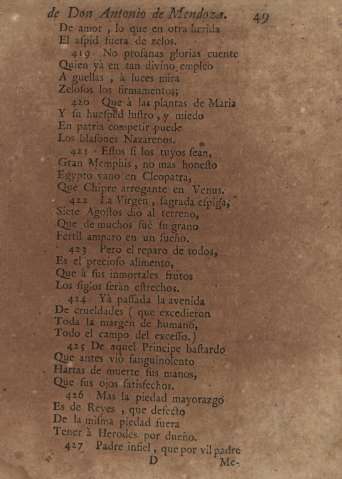 de Don Antonio de Mendoza. 49
De amor, lo que en otra herida
El aspid fuera de zelos.
419 No profanas glorias cuente
Quien yà en tan divino empleo
A guellas, à luces mira
Zelosos los firmamentos;
420 Que à las plantas de Maria
Y su huesped lustro, y miedo
En patria competir puede
Los blasones Nazarenos.
421 Estos si los tuyos sean,
Gran Memphis, no mas honesto
Egypto vano en Cleopatra,
Que Chipre arrogante en Venus.
422 La Virgen, sagrada espiga,
Siete Agostos diò al terreno,
Que de muchos fuè su grano
Fertil amparo en un sueño.
423 Pero el reparo de todos,
Es el precioso alimento,
Que à sus inmortales frutos
Los siglos seràn estrechos.
424 Yà passada la avenida
De crueldades (que excedieron
Toda la margen de humano,
Todo el campo del excesso.)
425 De aquel Principe bastardo
Que antes viò sanguinolento
Hartas de muerte sus manos,
Que sus ojos satisfechos.
426 Mas la piedad mayorazgo
Es de Reyes, que defecto
De la misma piedad fuera
Tener à Herodes por dueño.
427 Padre infiel, que por vil padre
D Me-